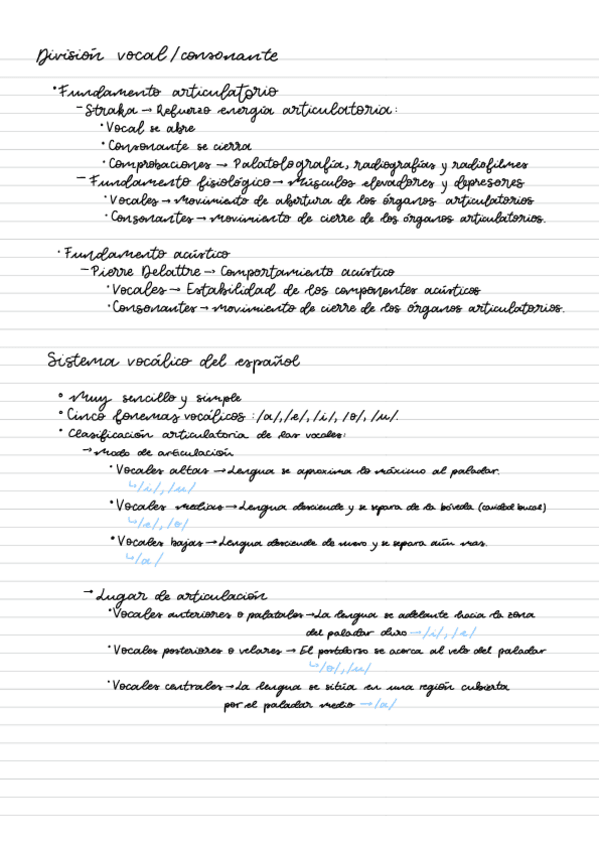 División vocal/consonante
• Fundamento articulatorio
- Straka → Refuerzo energía articulatoria:
• Vocal se abre
• Consonante se cierra
• Comprobaciones → Palatolografía, radiografías y radiofilmes
- Fundamento fisiológico → Músculos elevadores y depresores
• Vocales → Movimiento de abertura de los órganos articulatorios
• Consonantes → Movimiento de cierre de los órganos articulatorios.
• Fundamento acústico
- Pierre Delattre → Comportamiento acústico
• Vocales → Estabilidad de los componentes acústicos
• Consonantes → Movimiento de cierre de los órganos articulatorios.
Sistema vocálico del español
• Muy sencillo y simple
• Cinco fonemas vocálicos: /a/, /e/, /i/, /o/, /u/.
• Clasificación articulatoria de las vocales:
→ Modo de articulación
• Vocales altas → Lengua se aproxima lo máximo al paladar.
↳ /i/, /u/
• Vocales medias → Lengua desciende y se separa de la bóveda (cavidad bucal)
↳ /e/, /o/
• Vocales bajas → Lengua desciende de nuevo y se separa aún mas.
↳ /a/
→ Lugar de articulación
• Vocales anteriores o palatales → La lengua se adelante hacia la zona
del paladar duro → /i/, /e/
• Vocales posteriores o velares → El postdorso se acerca al velo del paladar
↳ /o/, /u/
• Vocales centrales → La lengua se sitúa en una región cubierta
por el paladar medio → /a/